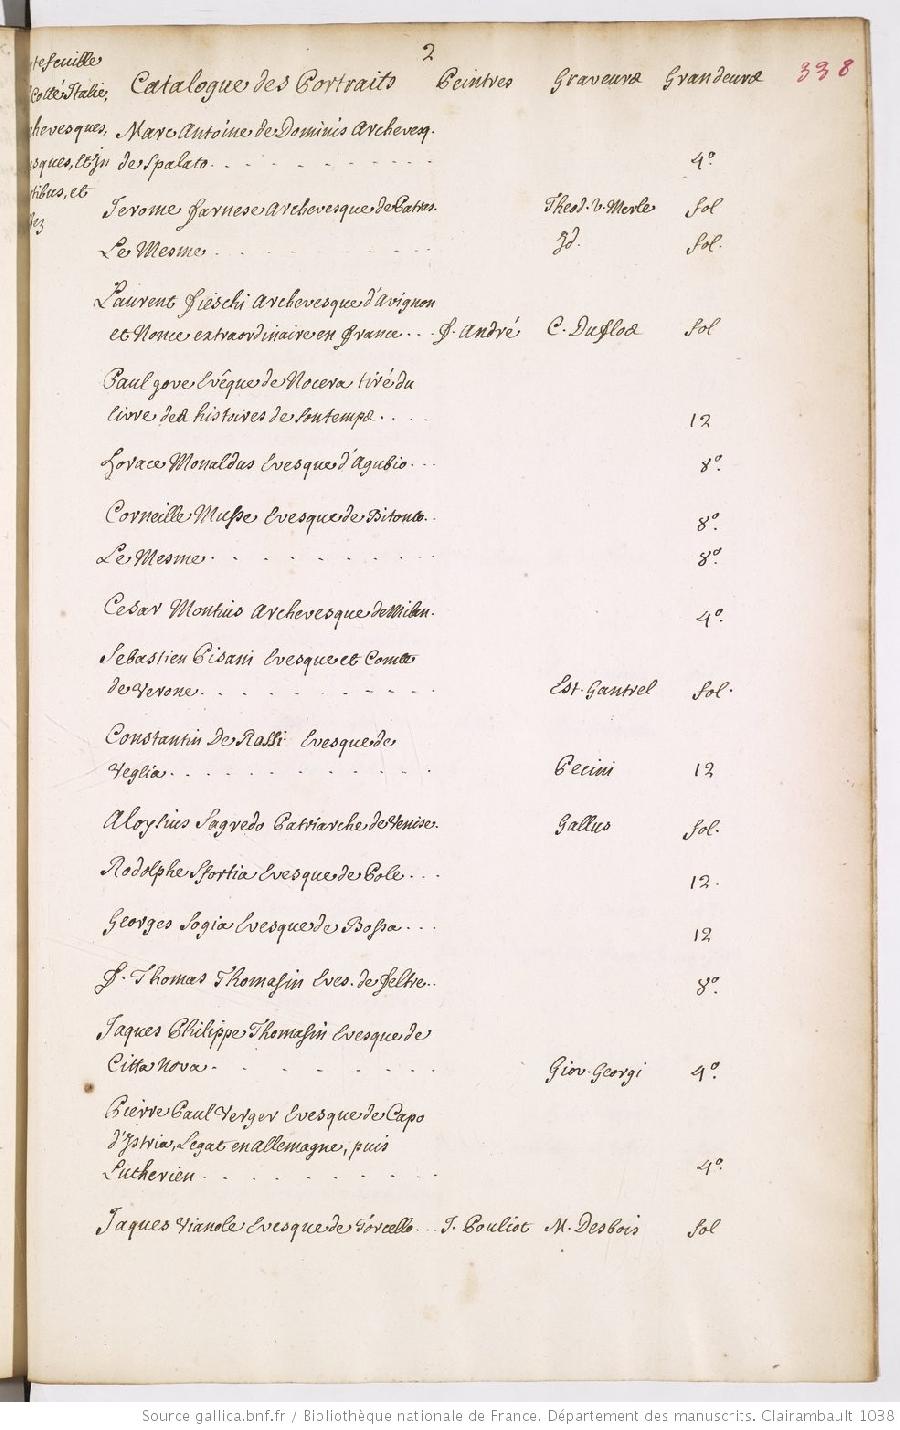 2
338
Catalogue des Portraits Peintres Graveurs Grandeurs
Collé Italie,
Marc Antoine de Dominis Archevesq.
de Spalato. 4º.
Jerome Farnese Archevesque de Patras. Theod. V. Merle fol
Le Mesme Id. fol.
Laurent Fieschi Archevesque d'Avignon
et Nonce extraordinaire en France... F. André C. Duflos fol
Paul Jove Evêque de Nocera tiré du
livre des histoires de son temps.... 12
Horace Monaldus Evesque d'Agubio... 8º.
Corneille Musse Evesque de Bitonto.. 8º.
Le Mesme. 8º.
Cesar Montius Archevesque de Milan. 4º.
Sebastien Pisani Evesque et Comte
de Verone. Est. Gantrel fol.
Constantin De Rassi Evesque de
Veglia. Pecini 12
Aloysius Sagredo Patriarche de Venise. Gallus fol.
Rodolphe Sfortia Evesque de Pole... 12.
Georges Sogia Evesque de Bossa... 12
F. Thomas Thomasin Eves. de Feltre.. 8º.
Jaques Philippe Thomasin Evesque de
Citta Nova. Giov. Georgi 4º.
Pierre Paul Verger Evesque de Capo
d'Istria, Legat en allemagne, puis
Lutherien. 4º.
Jaques Vianole Evesque de Torcello.. J. Pouliot M. Desbois fol
Source gallica.bnf.fr / Bibliothèque nationale de France. Département des manuscrits. Clairambault 1038